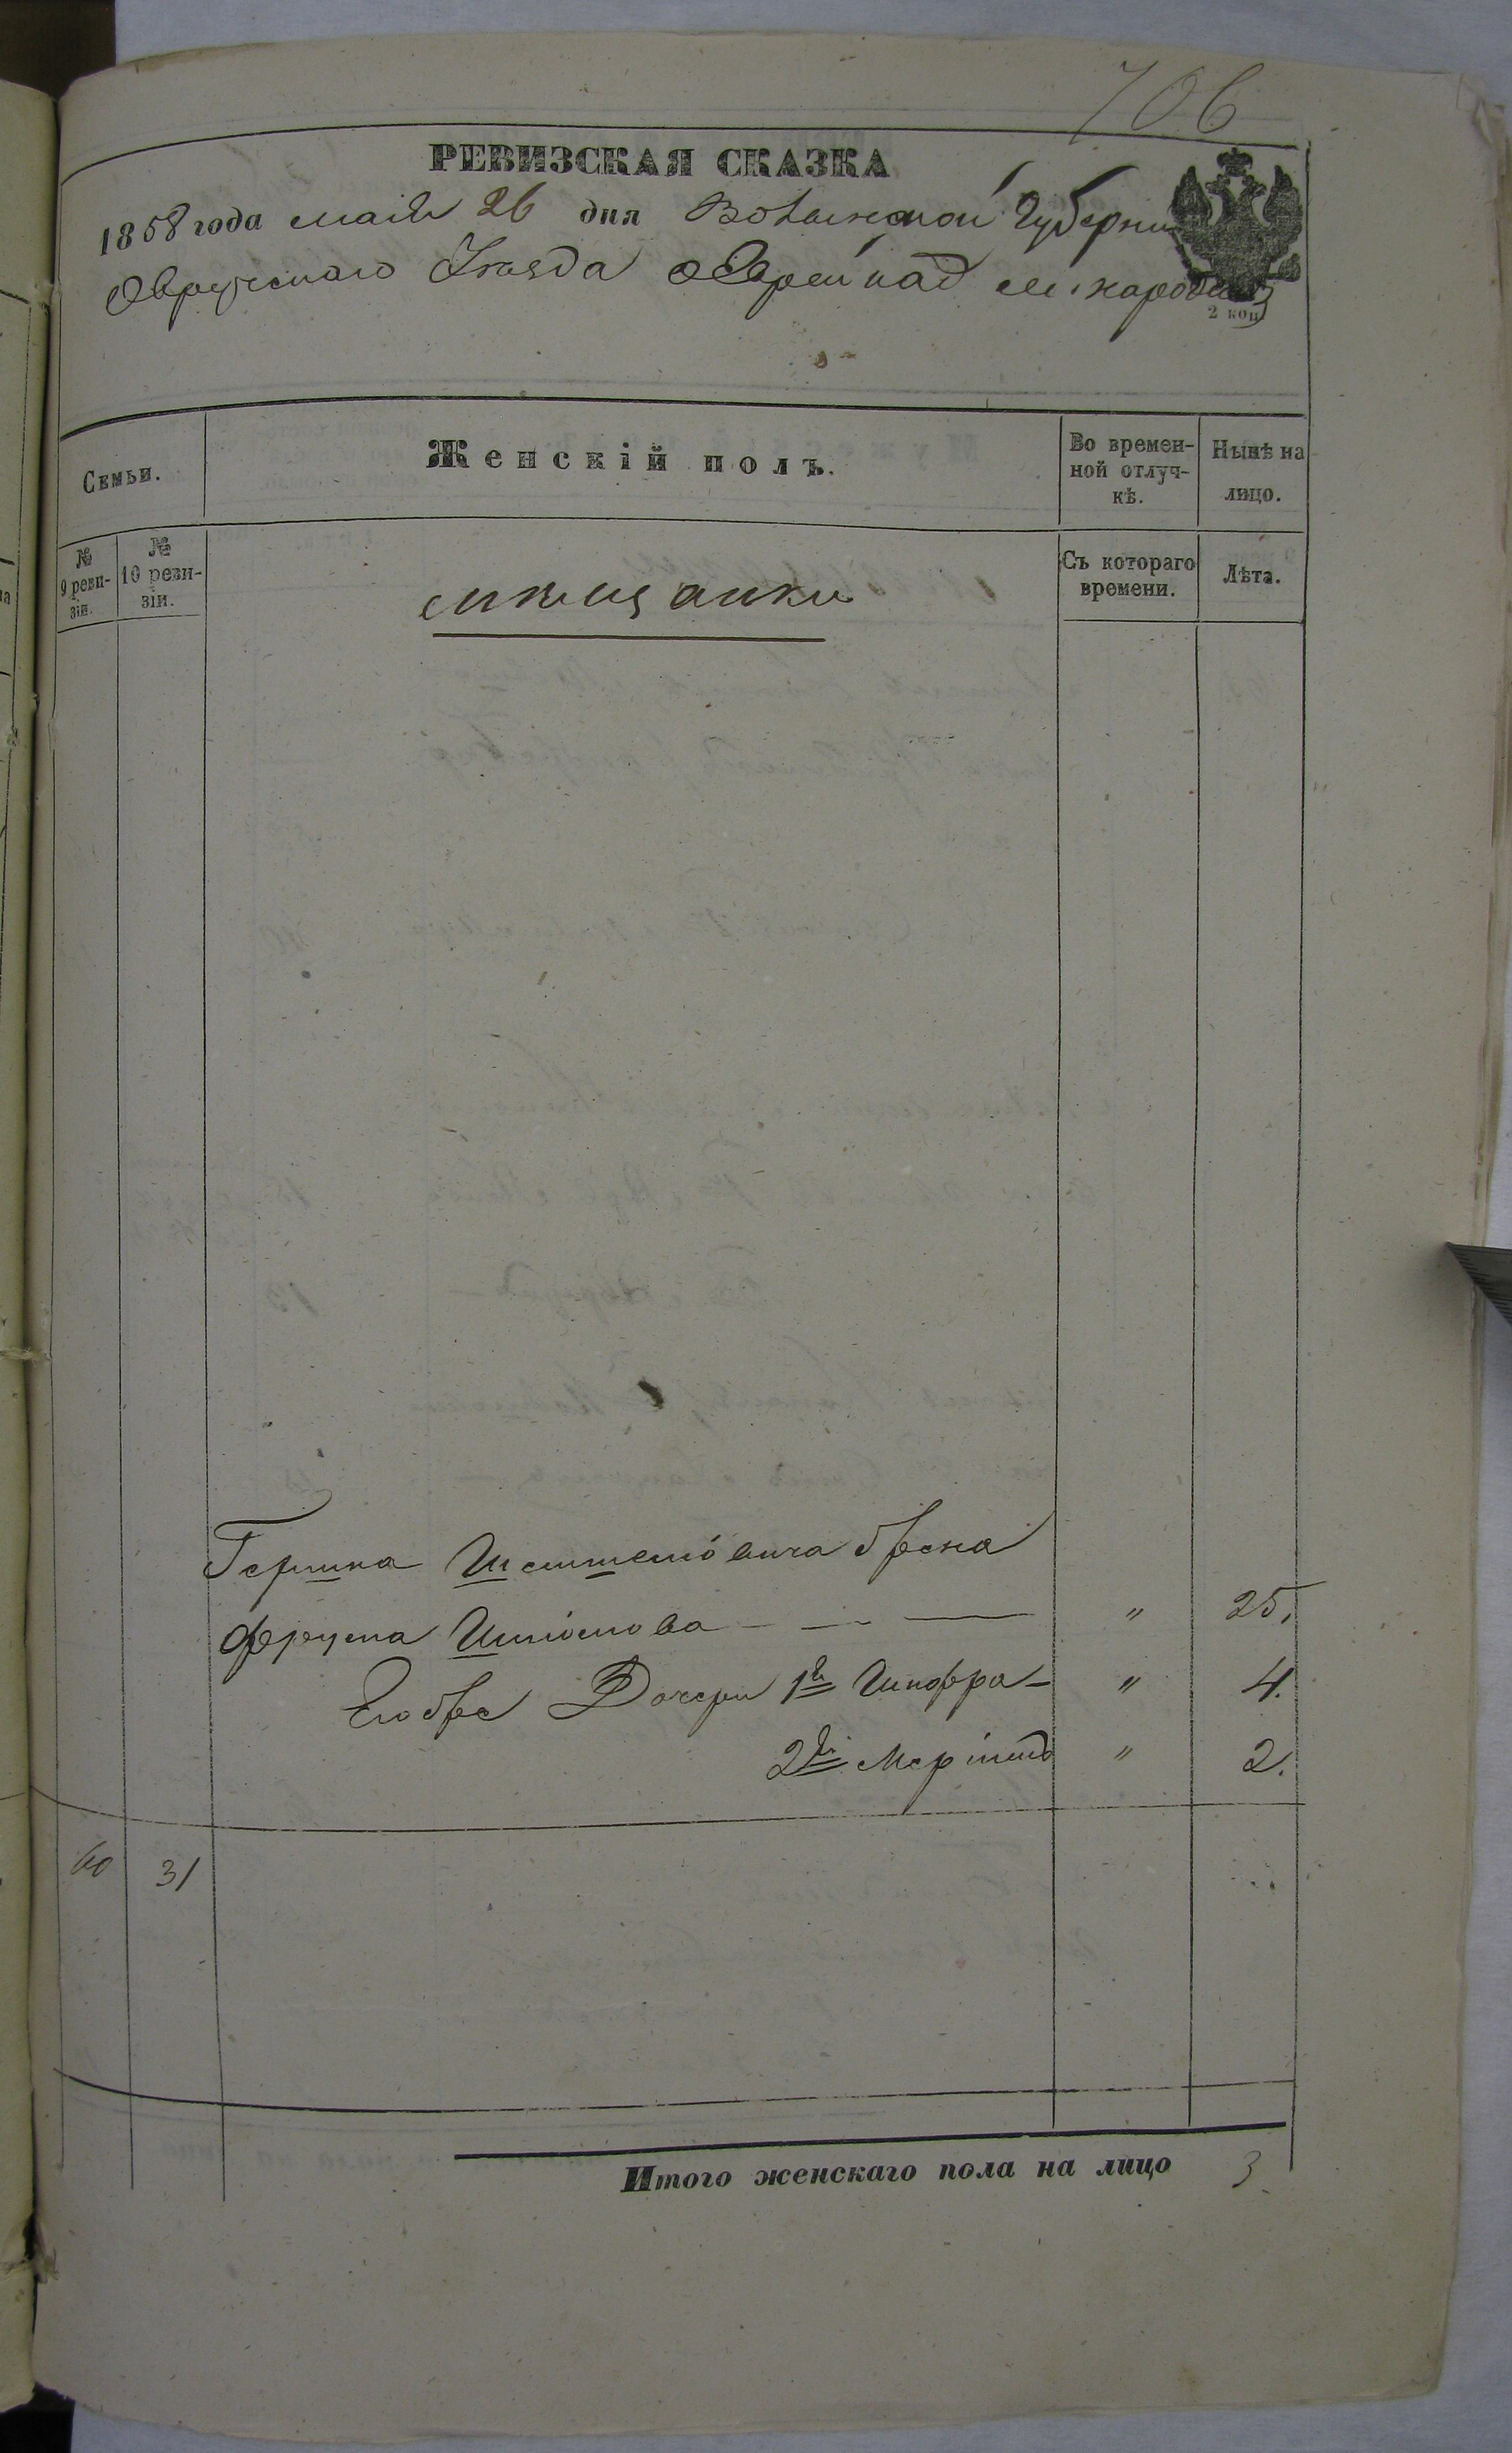 706
РЕВИЗСКАЯ СКАЗКА
1858 года маія 26 дня Волынской Губерніи
Овручскаго Уезда м. Народичъ
2 коп.
Семьи.
Женскій полъ.
Во времен-
ной отлуч-
кѣ.
Нынѣ на
лицо.
№
9 реви-
зіи.
№
10 реви-
зіи.
мещанки
Съ котораго
времени.
Лѣта.
Гершка жена
Фрума " 25.
Его Дочери 1я Шифра " 4.
2я " 2.
60 31
Итого женскаго пола на лицо 3.